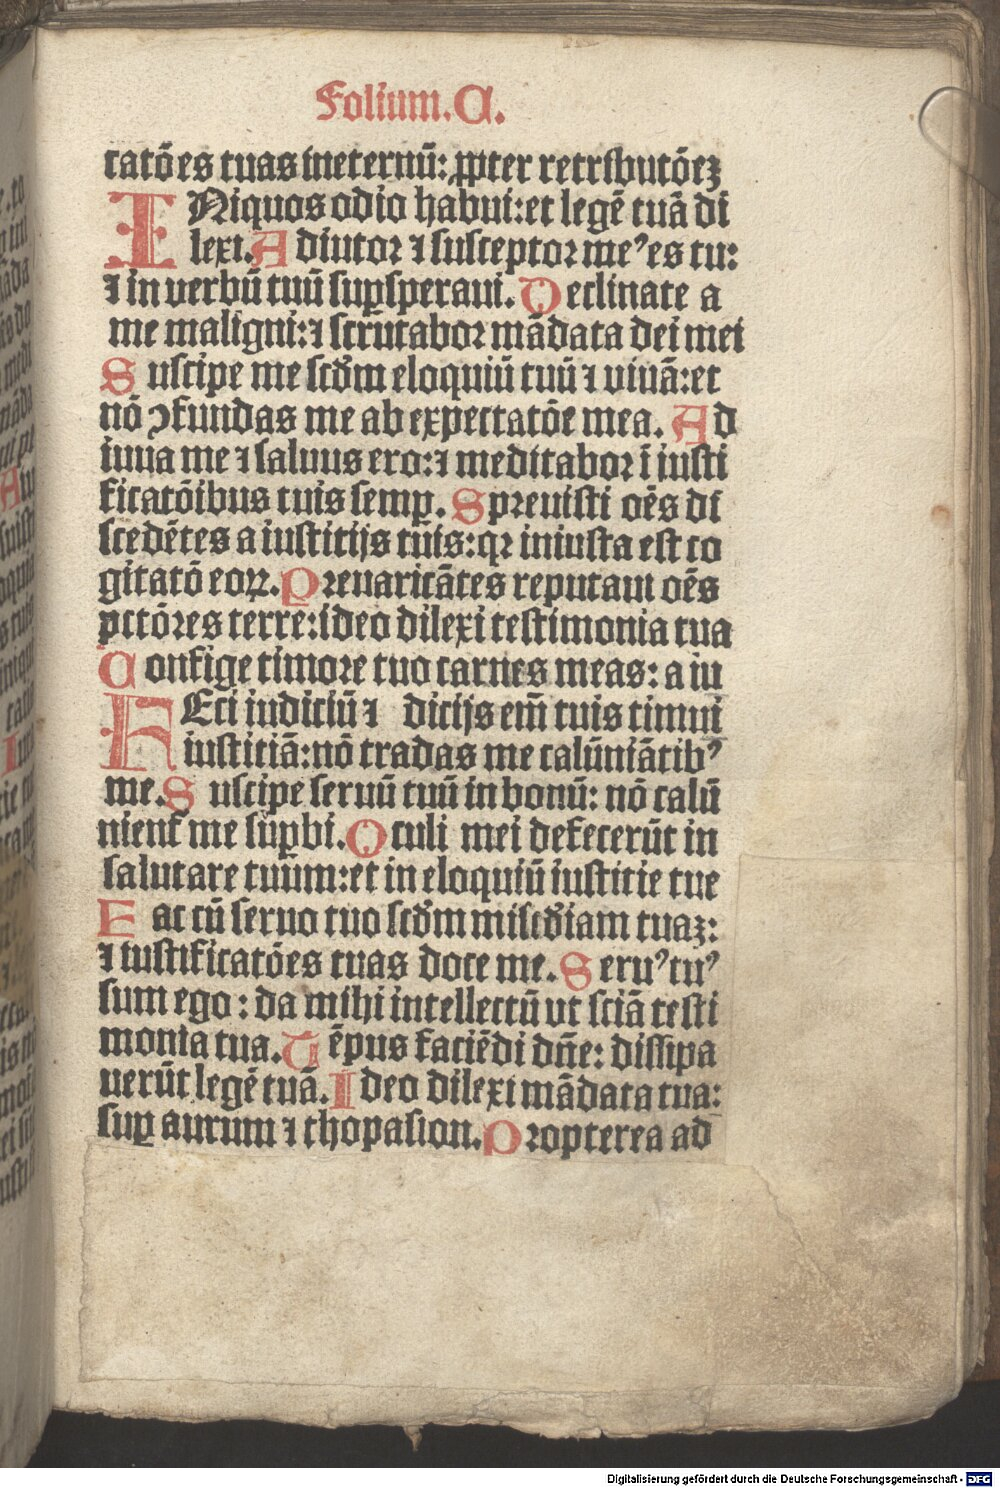 Folium.C.
catōes tuas ineternū: ꝓpter retributōeꝫ
INiquos odio habui:et legē tuā di
lexi.Adiutor ⁊ susceptor meꝰ es tu:
⁊ in verbū tuū suꝑsperaui.Declinate a
me maligni:⁊ scrutabor mādata dei mei
Suscipe me scḋm eloquiū tuū ⁊ viuā:et
nō ↄfundas me ab expectatōe mea. Ad
iuua me ⁊ saluus ero:⁊ meditabor ī iusti
ficatōibus tuis semꝑ.Spreuisti oēs di
scedētes a iusticijs tuis:qꝛ iniusta est co
gitatō eoꝝ.Preuaricātes reputaui oēs
pctōres terre:ideo dilexi testimonia tua
Confige timore tuo carnes meas: a iu
FEci iudiciū ⁊ dicijs em̄ tuis timui
iusticiā:nō tradas me calūniātibꝰ
me.Suscipe seruū tuū in bonū: nō calū
nient me suꝑbi.Oculi mei defecerūt in
salutare tuum:et in eloquiū iusticie tue
Fac cū seruo tuo scḋm miscḋiam tuaꝫ:
⁊ iustificatōes tuas doce me.Seruꝰ tuꝰ
sum ego: da mihi intellectū vt sciā testi
monia tua.Tēpus faciēdi dn̄e: dissipa
uerūt legē tuā.Ideo dilexi mādata tua:
suꝑ aurum ⁊ thopasion.Propterea ad
Digitalisierung gefördert durch die Deutsche Forschungsgemeinschaft - DFG